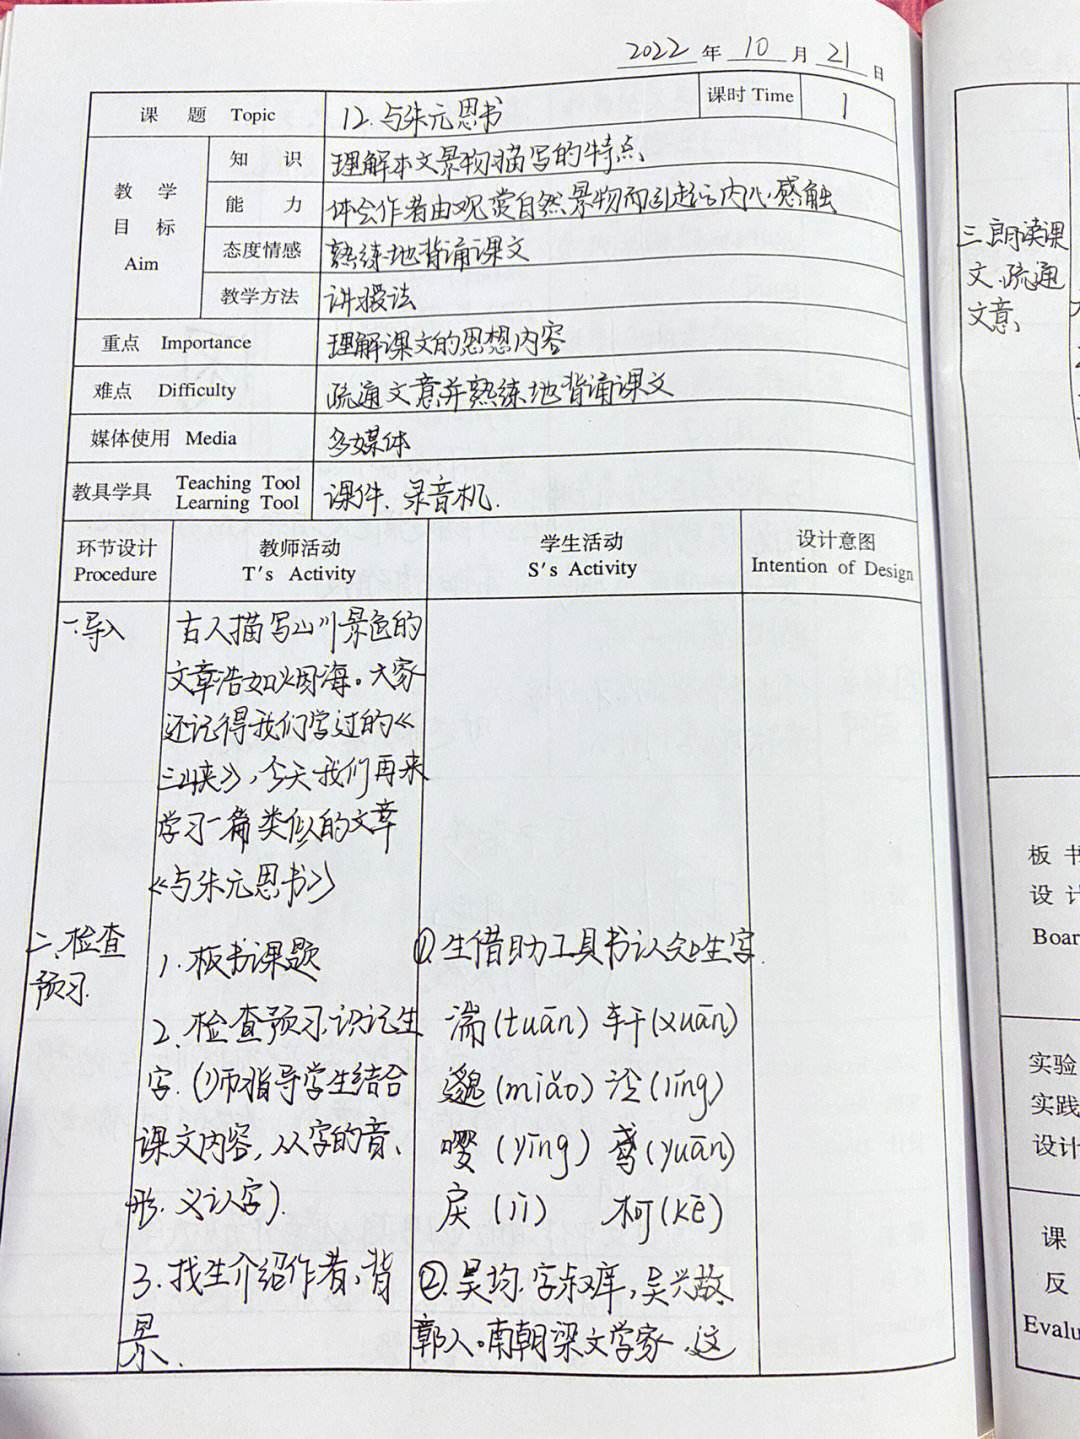 2022 年 10 月 21 日
课 题 Topic 12.与朱元思书 课时 Time 1
教 学 目 标 Aim
知 识 理解本文景物描写的特点、
能 力 体会作者由观赏自然景物而引起的内心感触
态度情感 熟练地背诵课文
教学方法 讲授法
重点 Importance 理解课文的思想内容
难点 Difficulty 疏通文意并熟练地背诵课文
媒体使用 Media 多媒体
教具学具 Teaching Tool Learning Tool 课件、录音机.
环节设计 教师活动 学生活动 设计意图
Procedure T's Activity S's Activity Intention of Design
一.导入
古人描写山川景色的
文章浩如烟海。大家
还记得我们学过的《
三峡》,今天我们再来
学习一篇类似的文章
《与朱元思书》
二、检查
预习.
1.板书课题
2.检查预习,识记生
字.(1)师指导学生结合
课文内容,从字的音、
形.义认字).
3.找生介绍作者,背
景.
①.生借助工具书认记生字.
湍(tuān) 轩(xuān)
邈(miǎo) 泠(líng)
嘤(yīng) 鸢(yuān)
戾(lì) 柯(kē)
②.吴均.字叔庠,吴兴故
鄣人。南朝梁文学家.这
三.朗读课
文.疏通
文意、
板 书
设 计
Boar
实验
实践
设计
课
反
Evalu